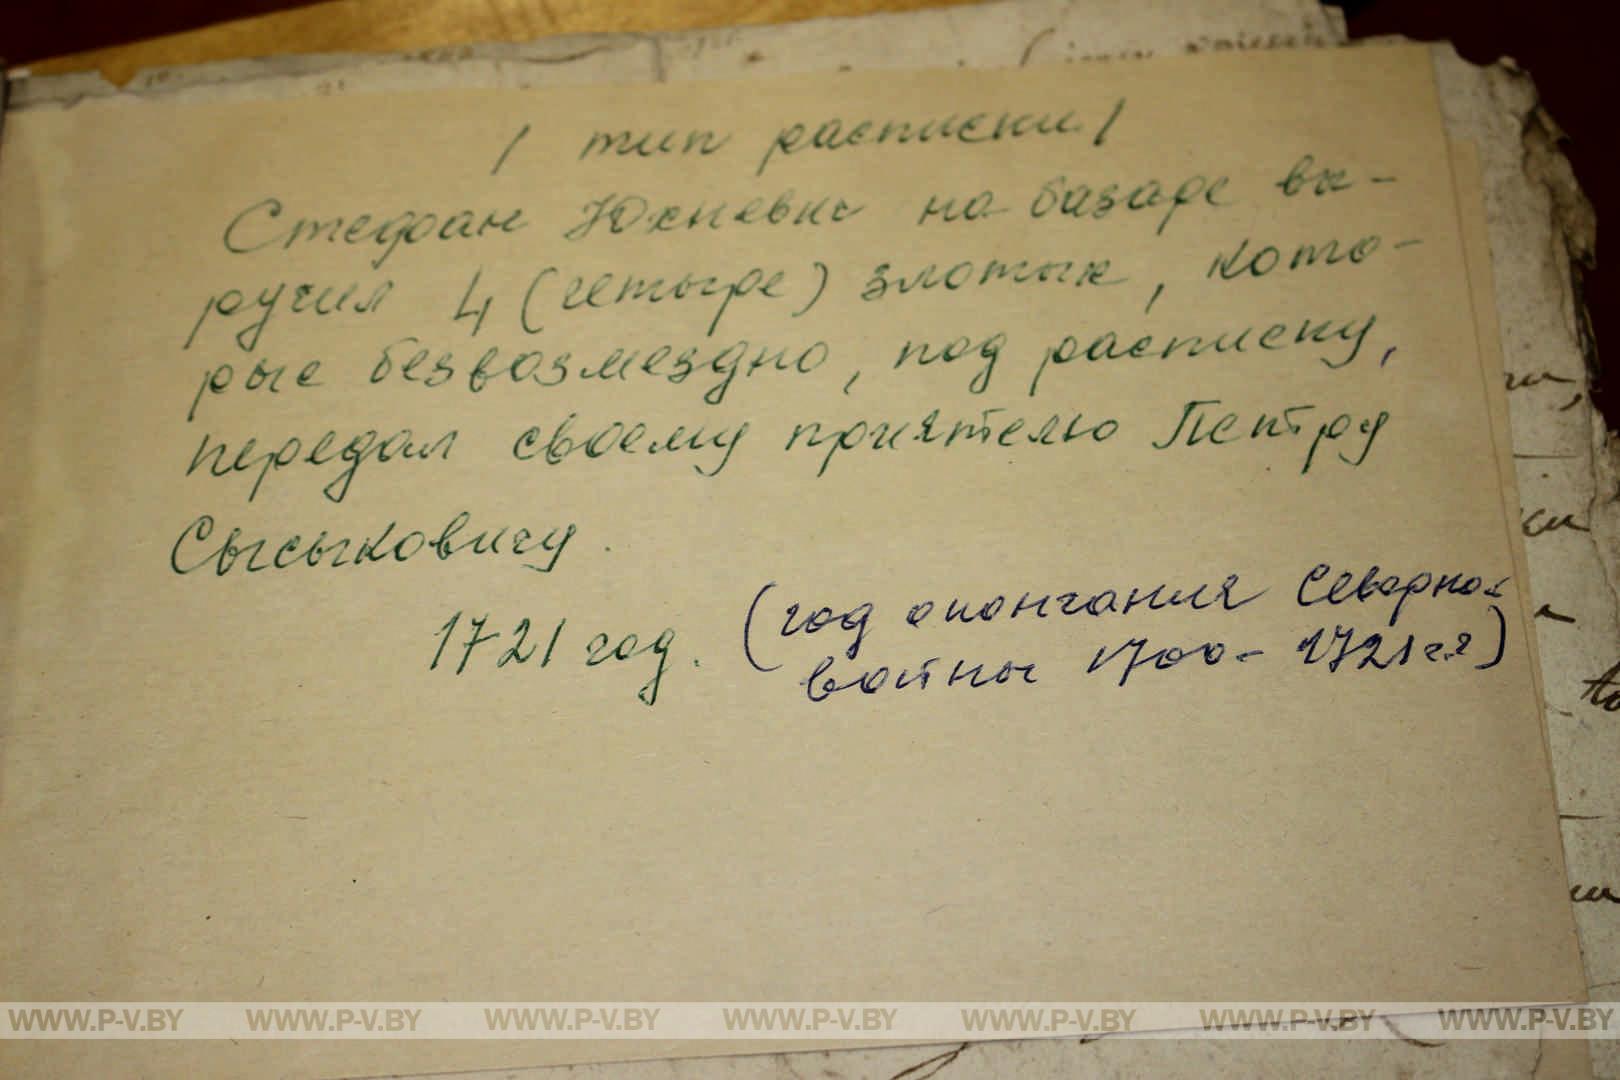 / тип расписки /
Стефан Юхневич на базаре вы-
ручил 4 (четыре) злотых, кото-
рые безвозмездно, под расписку,
передал своему приятелю Петру
Сысыковичу.
1721 год. (год окончания Северной
войны 1700 - 1721 г.г)
WWW.P-V.BY WWW.P-V.BY WWW.P-V.BY WWW.P-V.BY WWW.P-V.BY WWW.P-V.BY WWW.P-V.BY